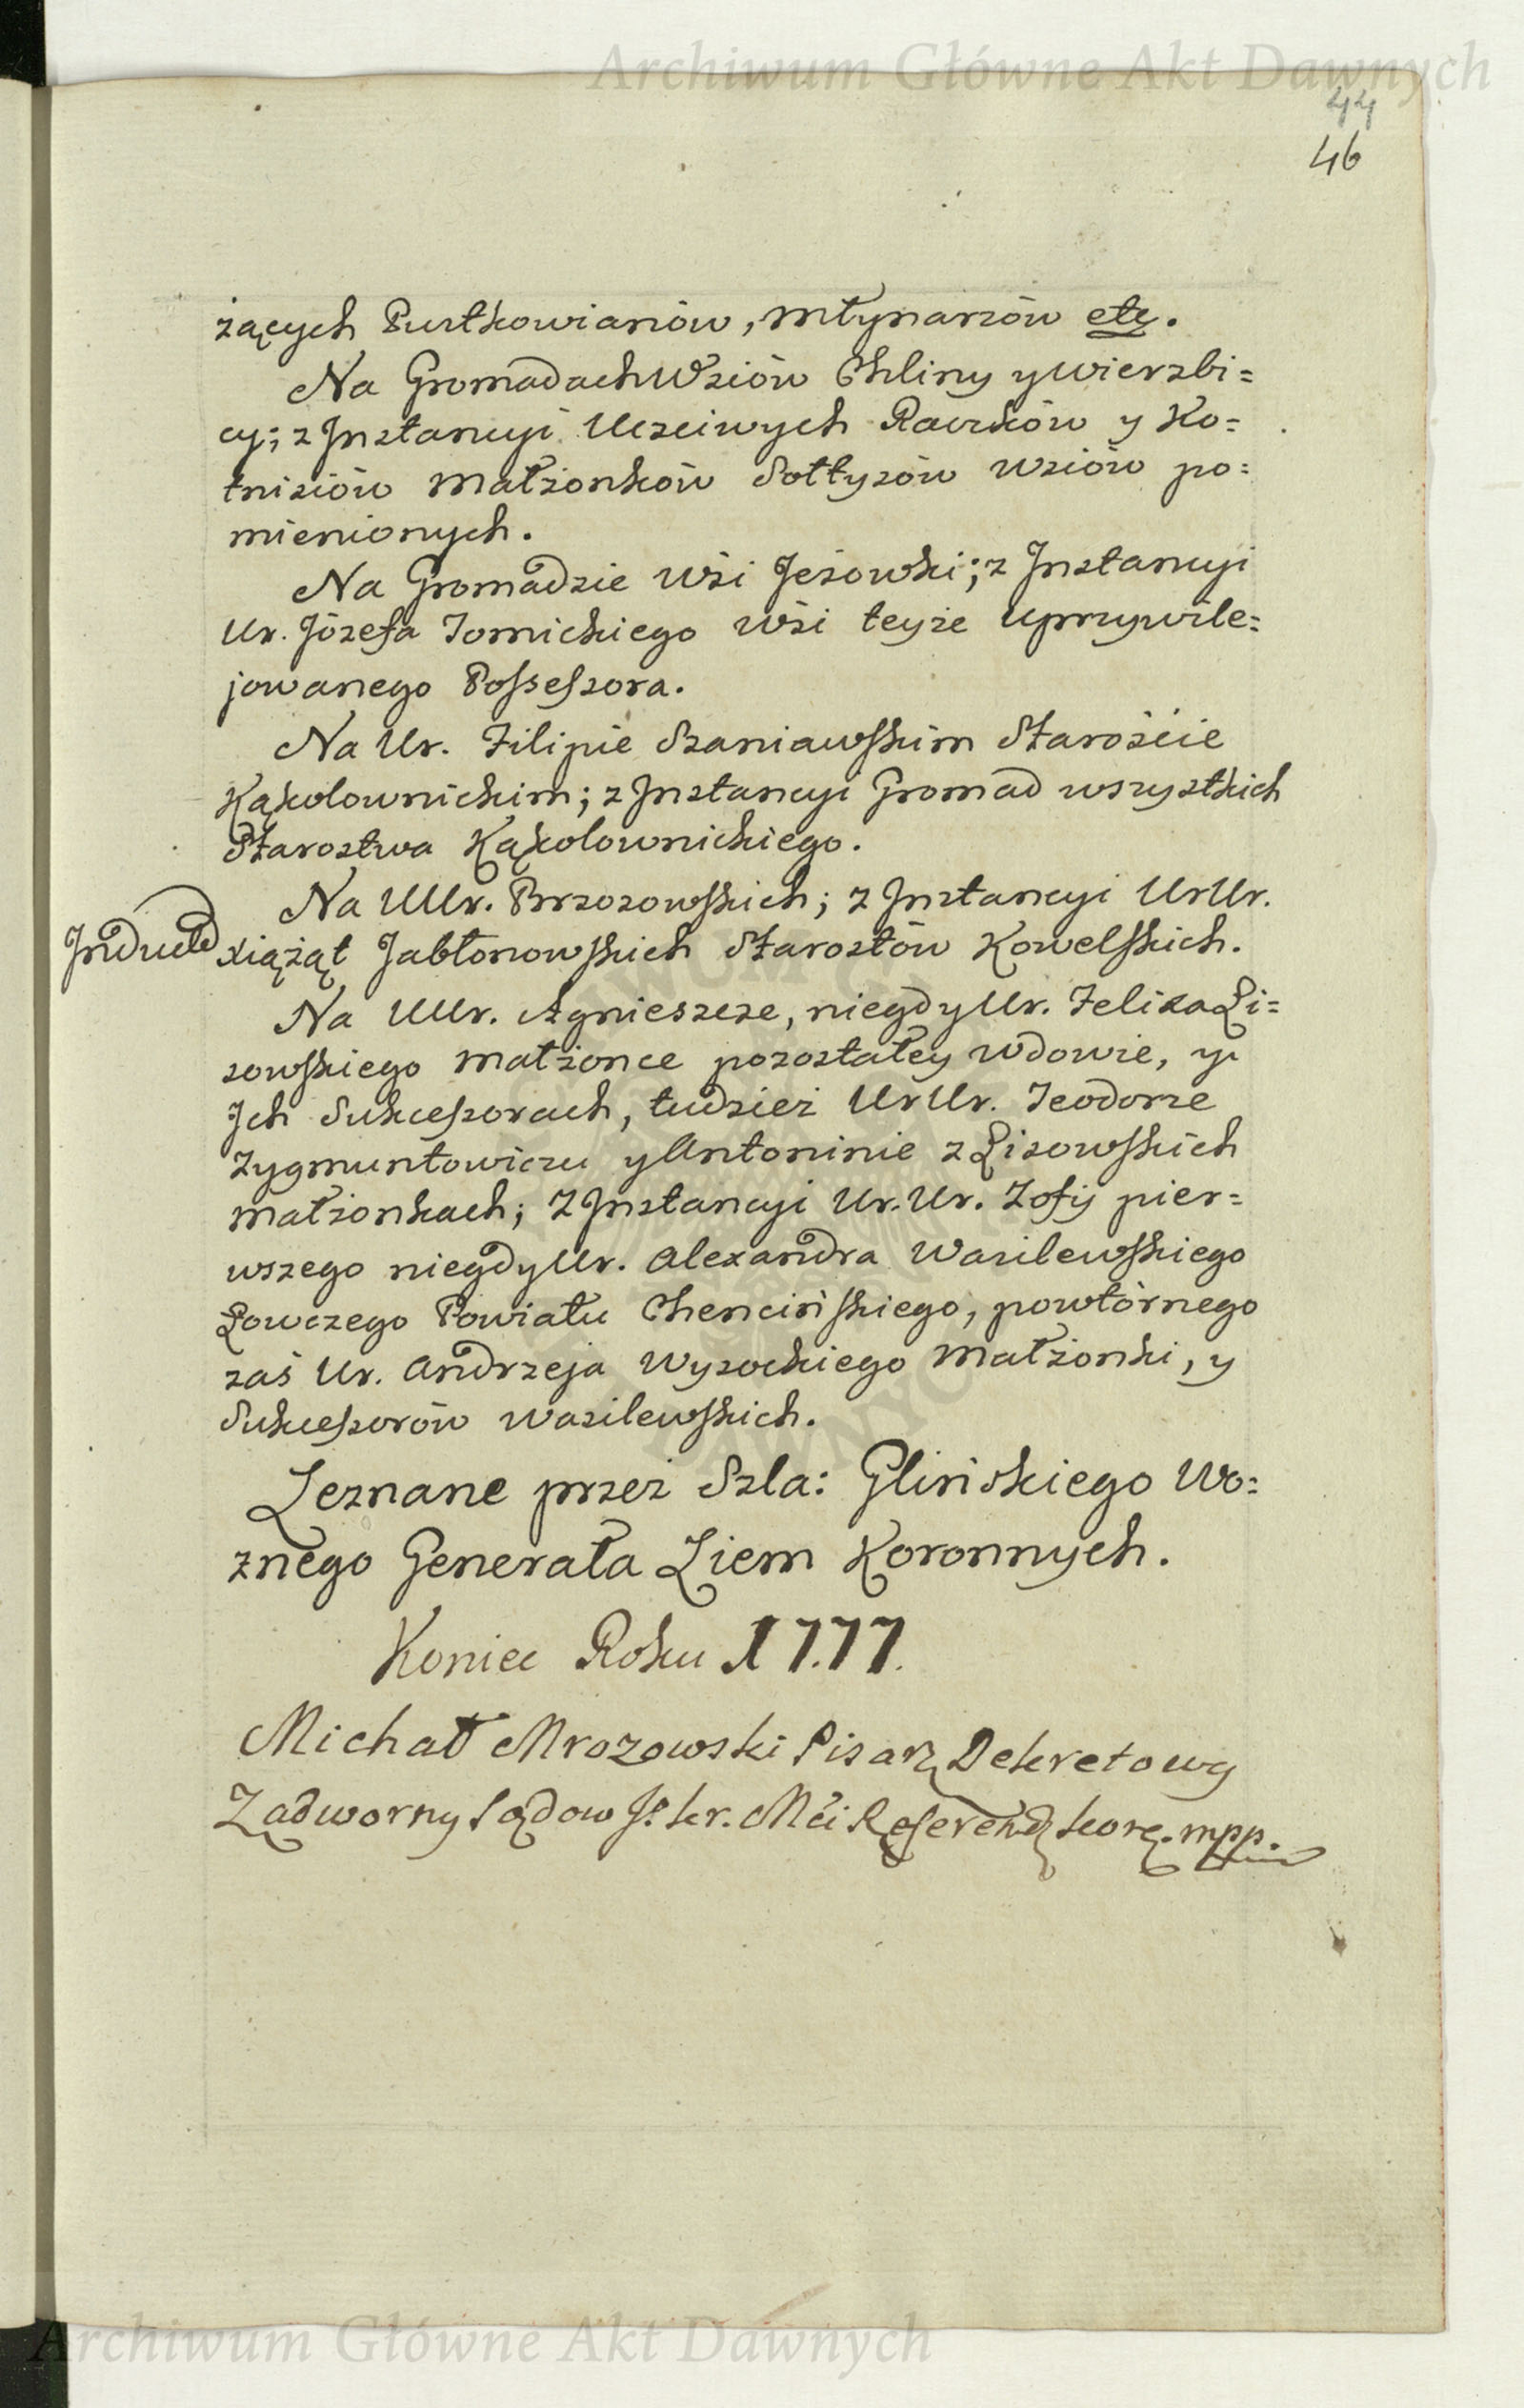 Archiwum Główne Akt Dawnych
44
46
żących Pustkowianów, Młynarzów etc.
Na Gromadach Wsiów Chliny y Wierzbi=
cy; z Instancyi Uczciwych Raczków y Ko=
tnisiów Małżonków Sołtysów Wsiów po=
mienionych.
Na Gromadzie Wsi Jeżowki; z Instancyi
Ur. Józefa Tomickiego Wsi teyże Uprzywile=
jowanego Possessora.
Na Ur. Filipie Szaniawskim Starośćie
Kąkolownickim; z Instancyi Gromad wszystkich
Starostwa Kąkolownickiego.
Na UUr. Brzozowskich; z Instancyi UrUr.
Xiążąt Jabłonowskich Starostów Kowelskich.
Na UUr. Agnieszcze, niegdy Ur. Felixa Li=
sowskiego Małżonce pozostałey Wdowie, y
Ich Sukcessorach, tudzież UrUr. Teodorze
Zygmuntowiczu y Antoninie z Lisowskich
Małżonkach; Z Instancyi Ur.Ur. Zofij pier=
wszego niegdy Ur. Alexandra Wasilewskiego
Łowczego Powiatu Chencińskiego, powtórnego
zaś Ur. Andrzeja Wysockiego Małżonki, y
Sukcessorów Wasilewskich.
Zeznane przez Szla: Glińskiego Wo=
znego Generała Ziem Koronnych.
Koniec Roku 1777.
Michał Mrozowski Pisarz Dekretowy
Zadworny Sądow J. kr. Mći Referendz. kor. mpp.
Archiwum Główne Akt Dawnych